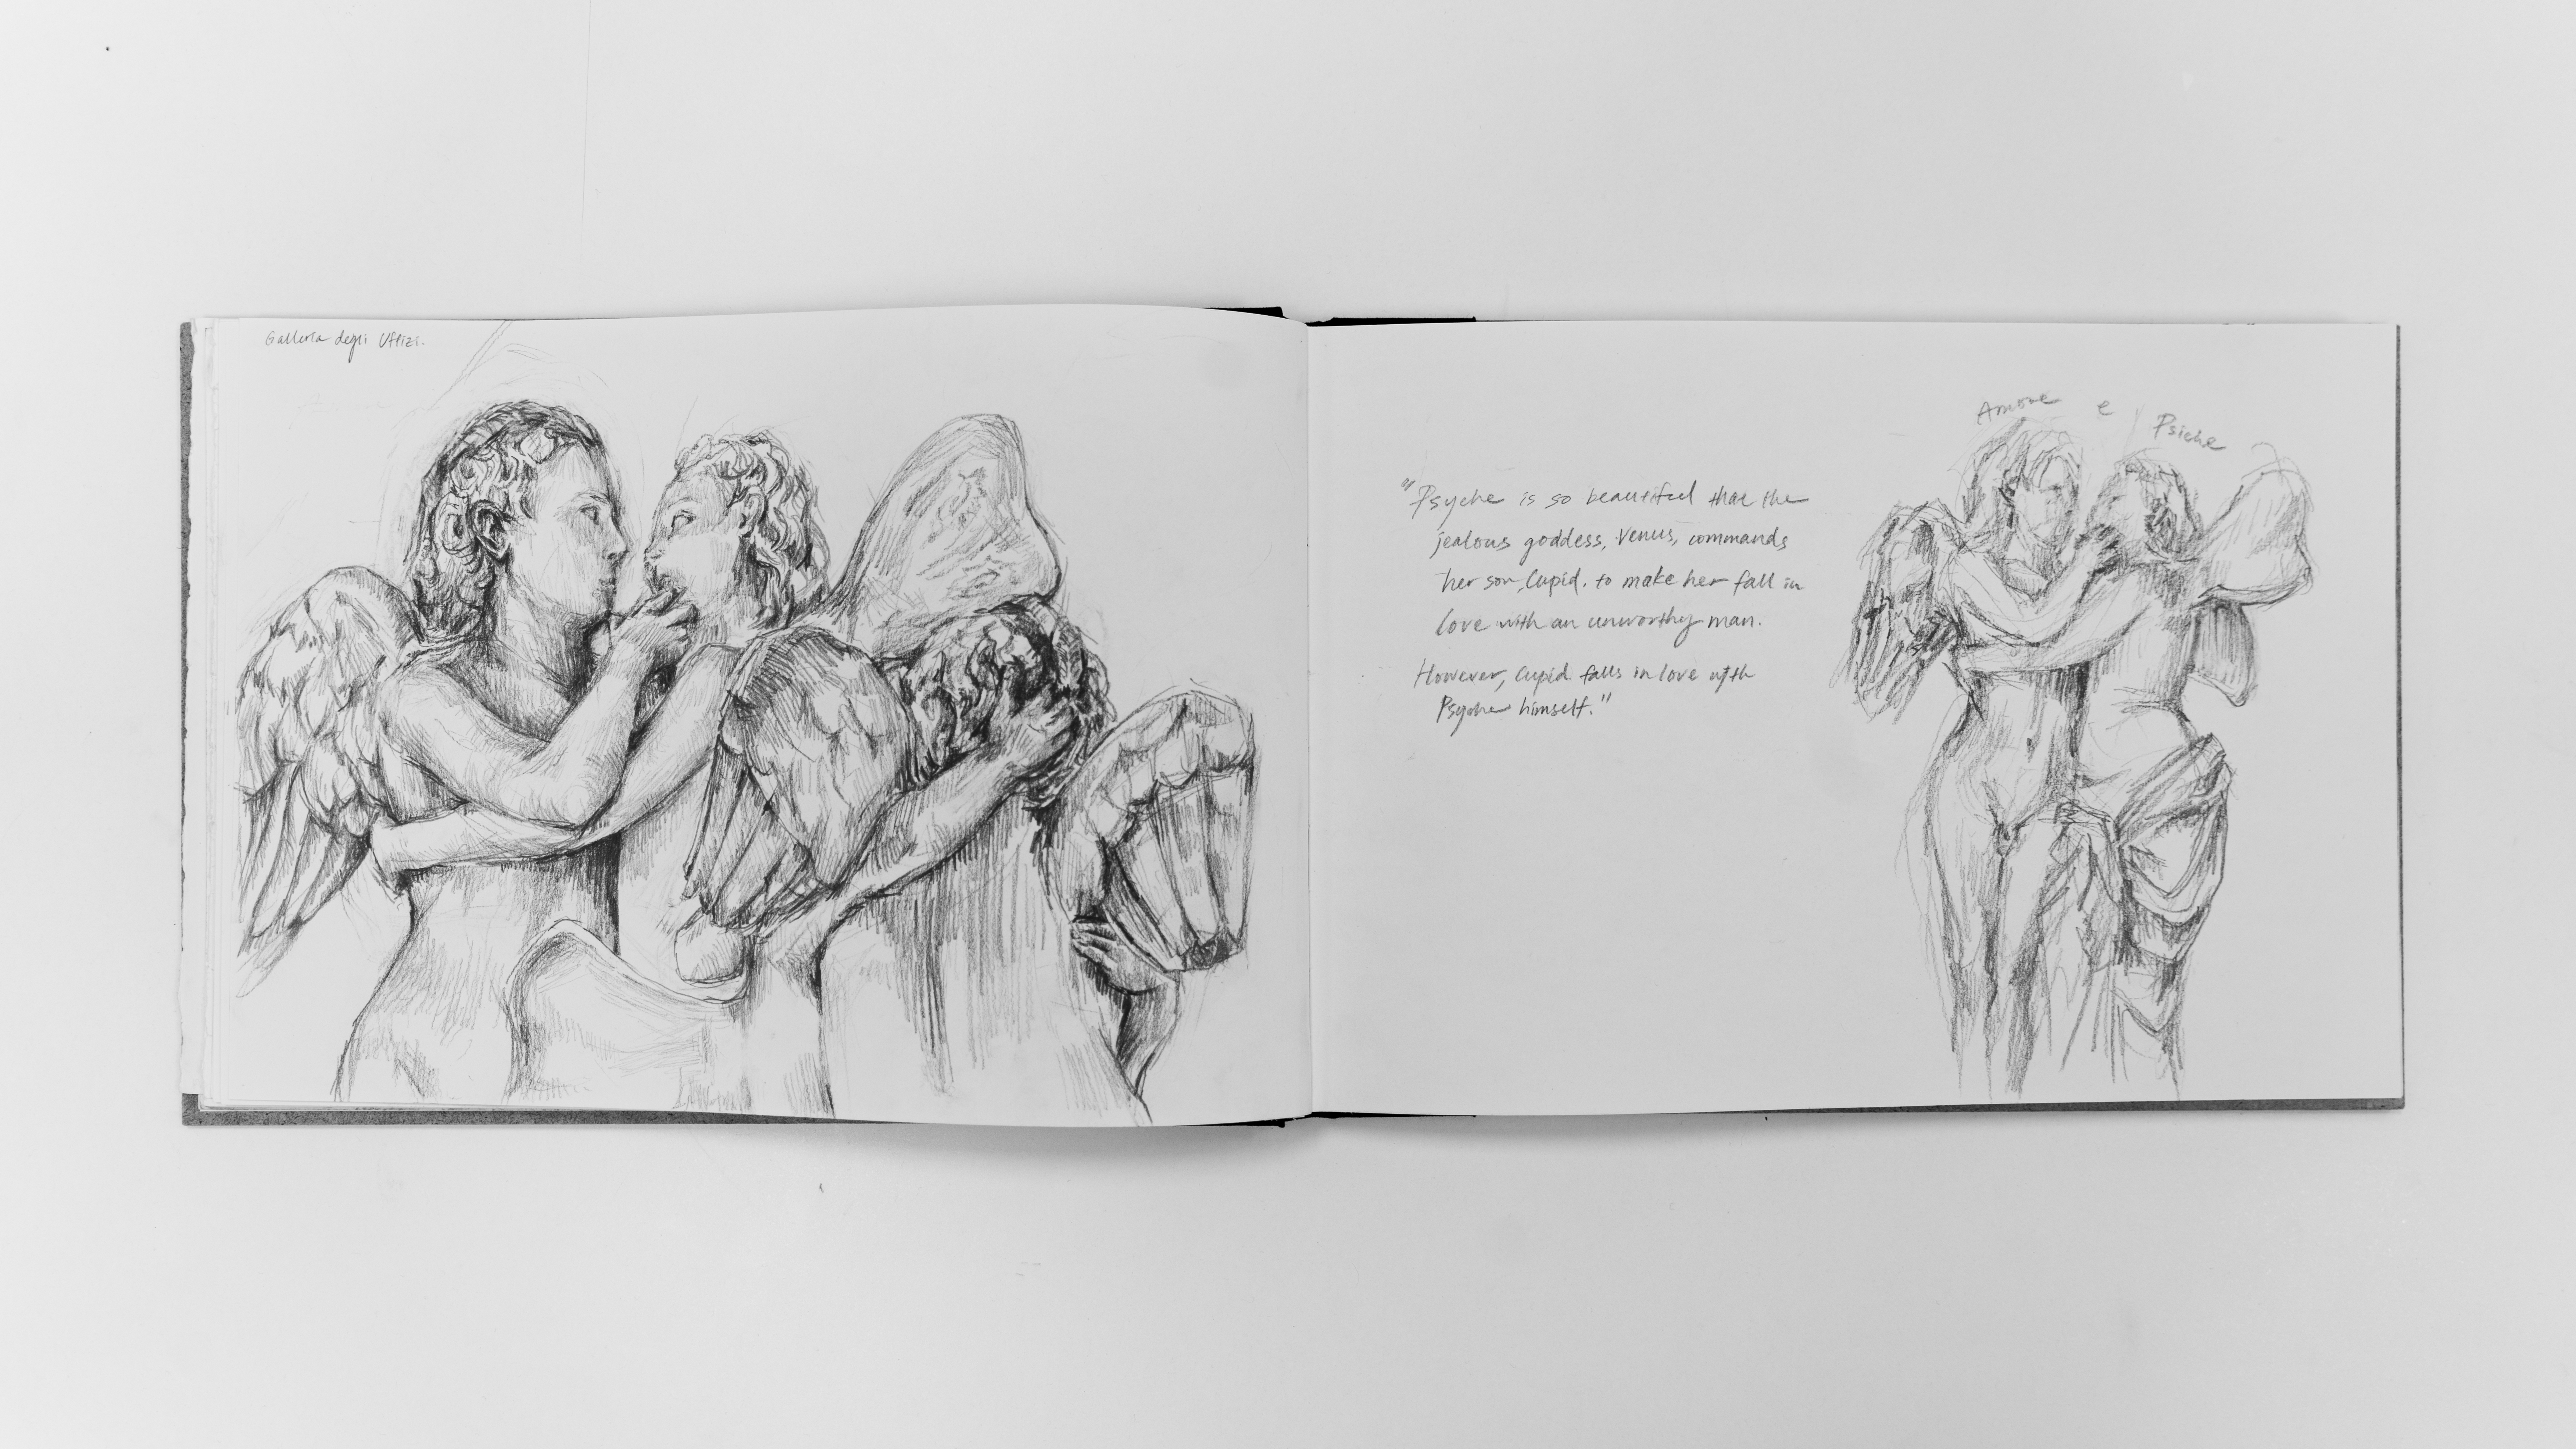 Galleria degli Uffizi.
Amore e Psiche
"Psyche is so beautiful that the
jealous goddess, Venus, commands
her son, Cupid, to make her fall in
love with an unworthy man.
However, Cupid falls in love with
Psyche himself."